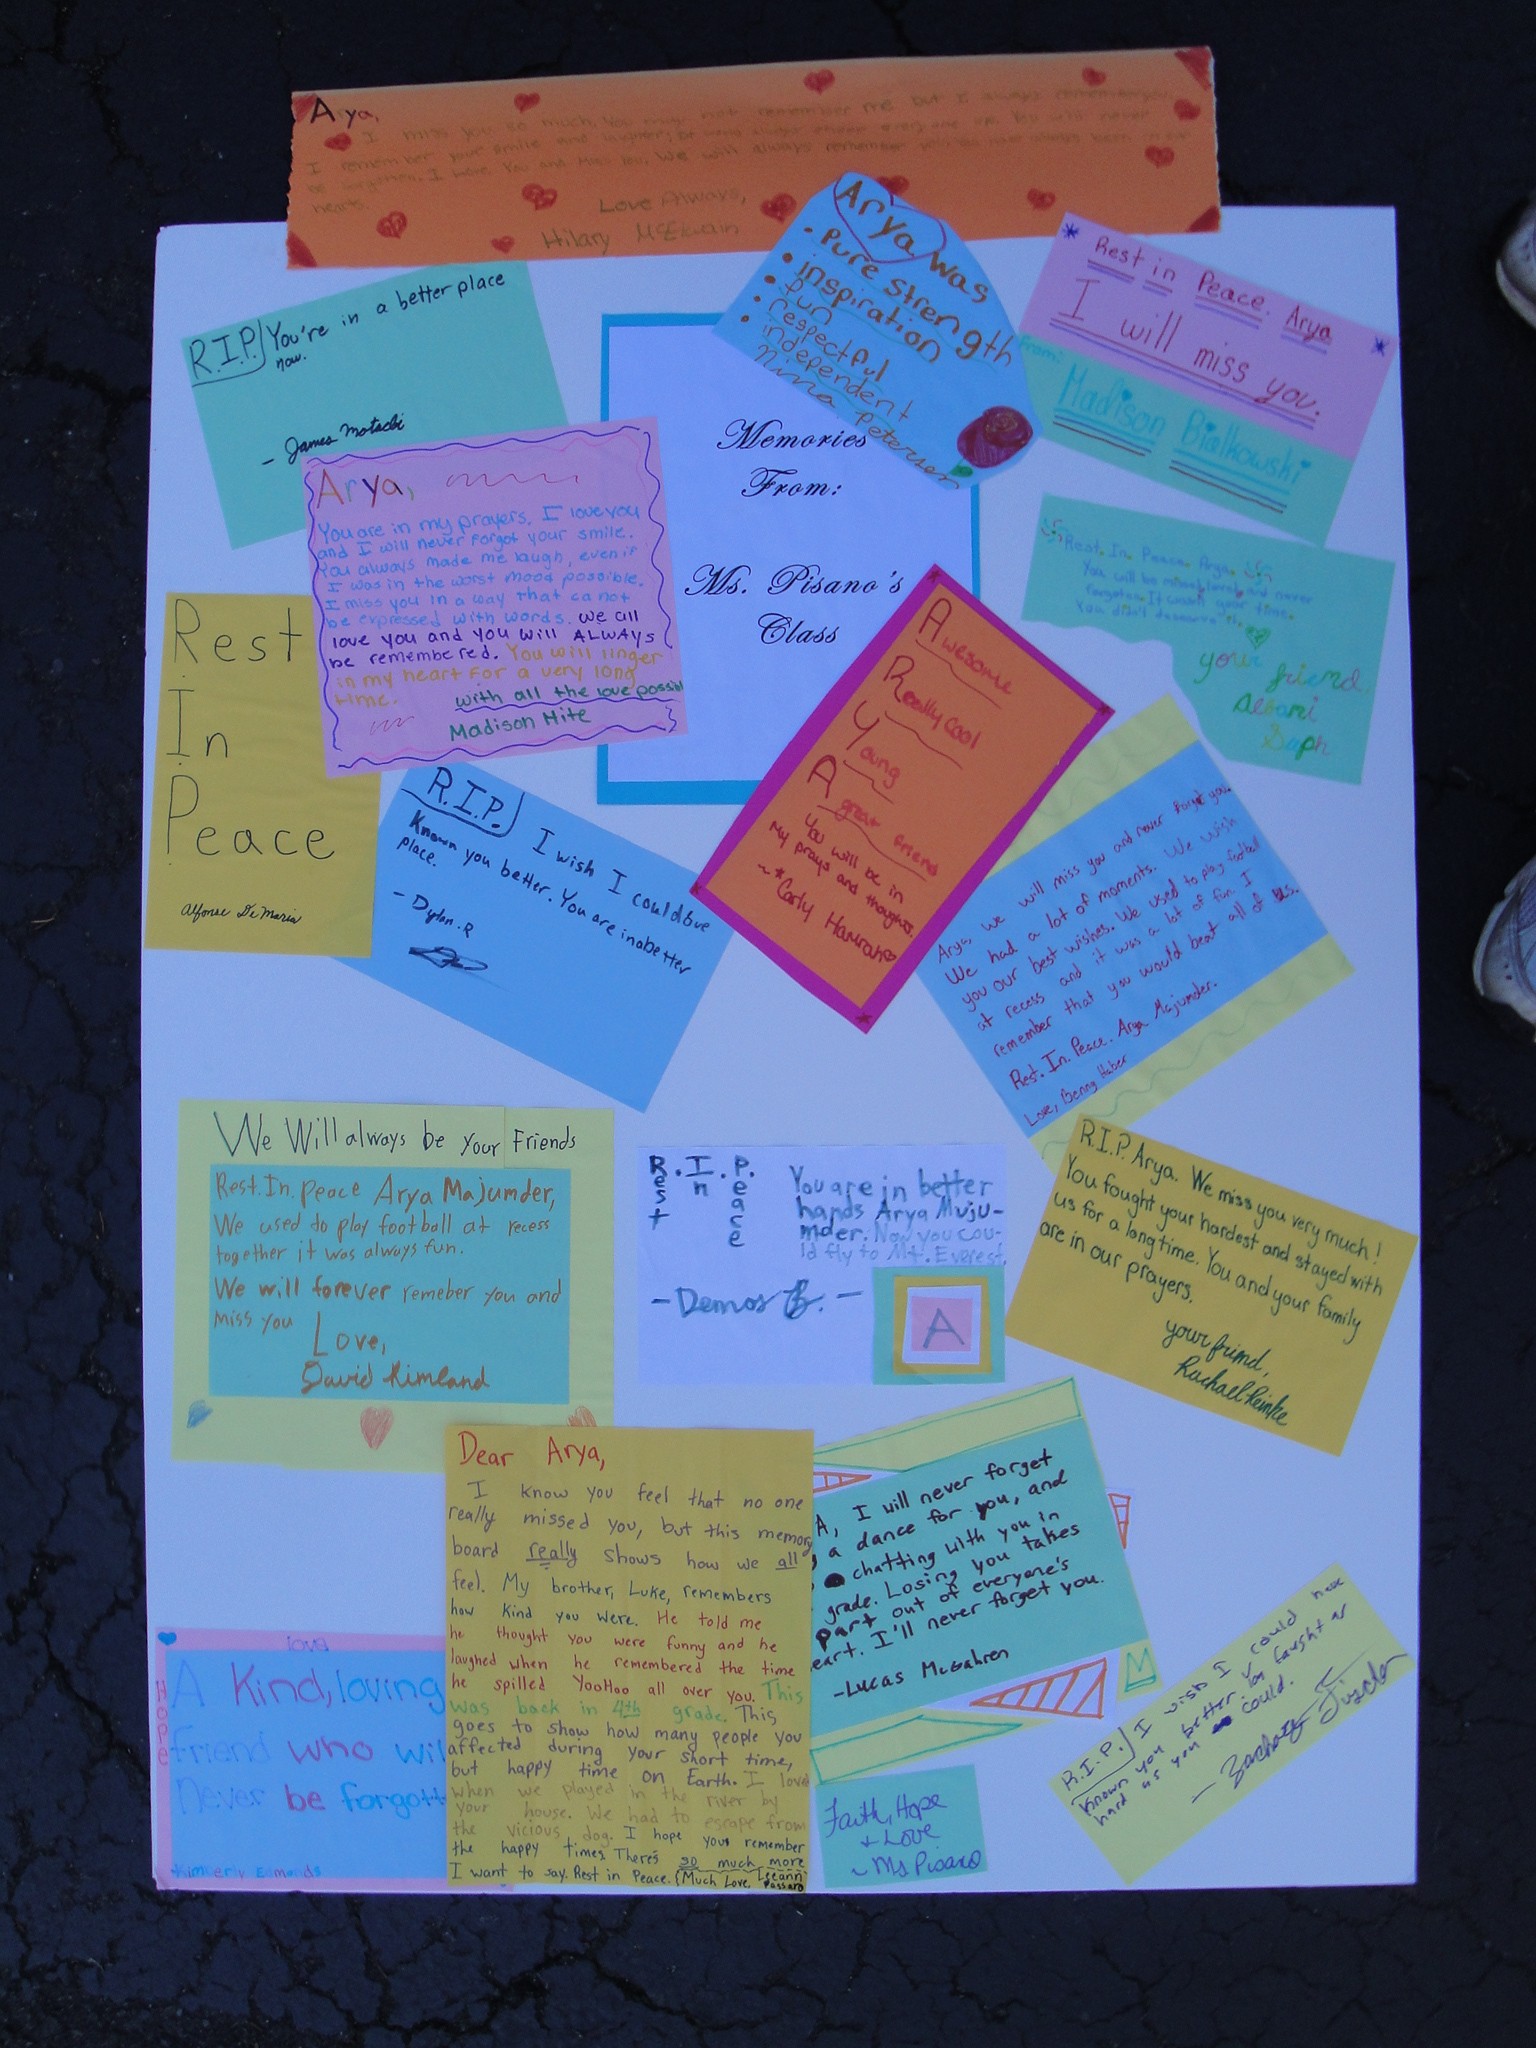 Arya,
I miss you so much. You may not remember me but I always remember you.
I remember your smile and laughter,
be forgotten. I love you and miss you. We will always remember you.
hearts.
Love Always,
Hilary McElwain
Arya was
• Pure strength
• inspiration
• fun
• respectful
• independent
Nina Petersen
Rest in Peace. Arya
I will miss you.
From:
Madison Bialkowski
R.I.P. You're in a better place
now.
- James
Memories
From:
Ms. Pisano's
Class
Arya,
You are in my prayers. I love you
and I will never forgot your smile.
You always made me laugh, even if
I was in the worst mood possible.
I miss you in a way that ca not
be expressed with words. we all
love you and you will ALWAYS
be remembered. You will linger
in my heart for a very long
time.
with all the love possibl
Madison Hite
Rest. In. Peace. Arya.
You will be missed, loved, and never
forgotten. It wasn't your time.
You didn't deserve it.
your friend,
Rest
In
Peace
Alfonse DeMaria
A wesome
R eally cool
Y oung
A great friend
You will be in
My prays and thoughts.
~*Carly Hanrah
R.I.P. I wish I couldove
Known you better. You are inabetter
place.
- Dylan.R
Arya, we will miss you and never forget you.
We had a lot of moments. We wish
you our best wishes. We used to play football
at recess and it was a lot of fun. I
remember that you would beat all of us.
Rest. In. Peace. Arya Majumder.
Love, Benny Haber
We Will always be your Friends
Rest. In. peace Arya Majumder,
We used to play football at recess
together it was always fun.
We will forever remeber you and
miss you
Love,
David Rimland
R.I.P.
Rest In Peace
You are in better
hands Arya Muju-
mder. Now you cou-
ld fly to Mt. Everest.
- Demos B. -
A
R.I.P. Arya. We miss you very much!
You fought your hardest and stayed with
us for a long time. You and your family
are in our prayers.
your friend,
Rachael Reinke
Dear Arya,
I know you feel that no one
really missed you, but this memory
board really shows how we all
feel. My brother, Luke, remembers
how kind you were. He told me
he thought you were funny and he
laughed when he remembered the time
he spilled YooHoo all over you. This
was back in 4th grade. This
goes to show how many people you
affected during your short time,
but happy time on Earth. I love
when we played in the river by
your house. We had to escape from
the vicious dog. I hope your remember
the happy times. There's so much more
I want to say. Rest in Peace. Much Love, Leeann
Passaro
A, I will never forget
a dance for you, and
chatting with you in
grade. Losing you takes
part out of everyone's
eart. I'll never forget you.
-Lucas McGahren
M
love
HOPE
A Kind, loving
friend who wil
Never be forgott
Kimberly Edmonds
Faith, Hope
+ Love
~ Ms Pisano
R.I.P. I wish I could have
known you better. You faught as
hard as you could.
- Zachary